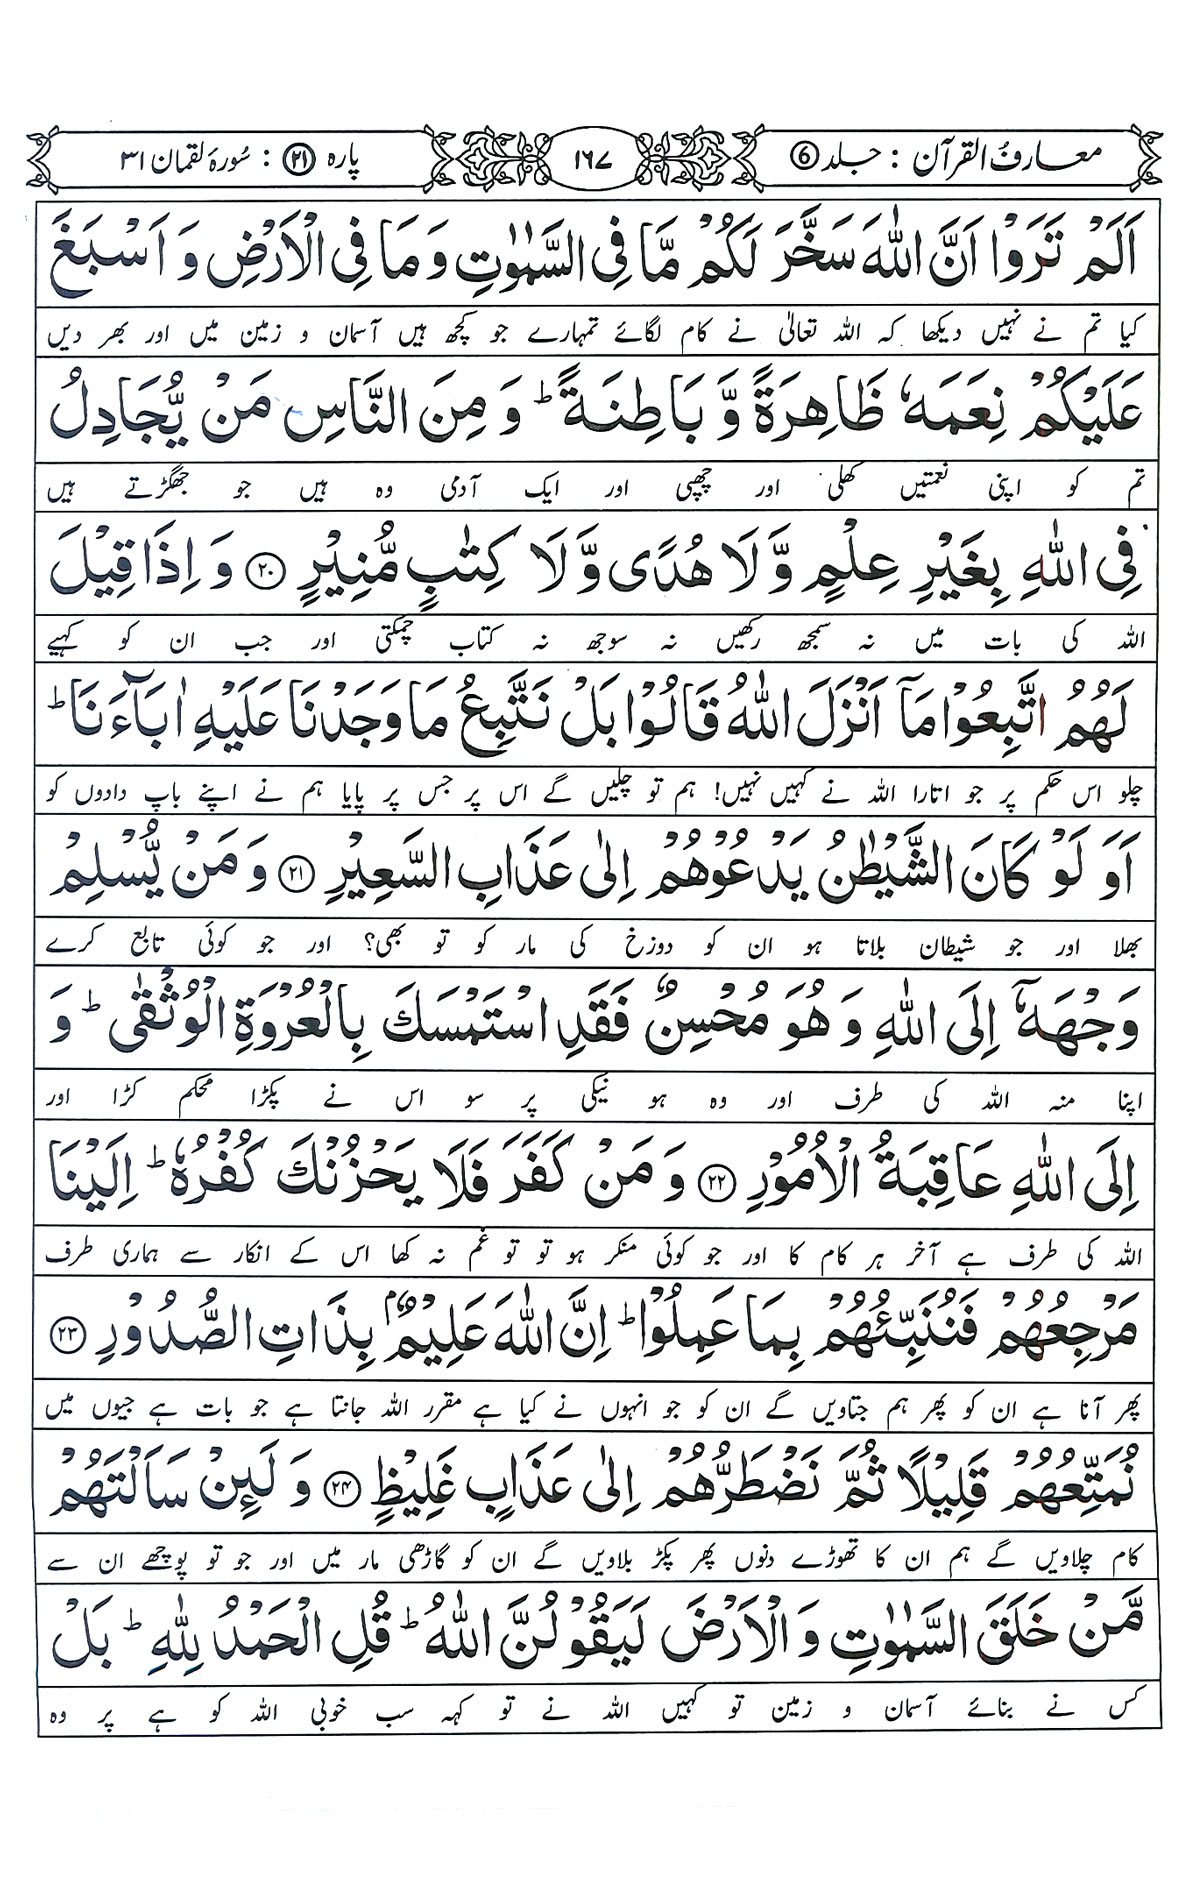 معارفُ القرآن : جلد ⑥
١٦٧
پارہ ㉑ : سُورۃ لقمان ٣١
اَلَمْ تَرَوْا اَنَّ اللّٰهَ سَخَّرَ لَكُمْ مَّا فِی السَّمٰوٰتِ وَ مَا فِی الْاَرْضِ وَ اَسْبَغَ
کیا تم نے نہیں دیکھا کہ اللہ تعالیٰ نے کام لگائے تمہارے جو کچھ ہیں آسمان و زمین میں اور بھر دیں
عَلَیْكُمْ نِعَمَهٗ ظَاهِرَةً وَّ بَاطِنَةً ؕ وَ مِنَ النَّاسِ مَنْ یُّجَادِلُ
تم کو اپنی نعمتیں کھلی اور چھپی اور ایک آدمی وہ ہیں جو جھگڑتے ہیں
فِی اللّٰهِ بِغَیْرِ عِلْمٍ وَّ لَا هُدًی وَّ لَا كِتٰبٍ مُّنِیْرٍ ۲۰ وَ اِذَا قِیْلَ
اللہ کی بات میں نہ سمجھ رکھیں نہ سوجھ نہ کتاب چمکتی اور جب ان کو کہیے
لَهُمُ اتَّبِعُوْا مَاۤ اَنْزَلَ اللّٰهُ قَالُوْا بَلْ نَتَّبِعُ مَا وَجَدْنَا عَلَیْهِ اٰبَآءَنَا ؕ
چلو اس حکم پر جو اتارا اللہ نے کہیں نہیں! ہم تو چلیں گے اس پر جس پر پایا ہم نے اپنے باپ دادوں کو
اَوَ لَوْ كَانَ الشَّیْطٰنُ یَدْعُوْهُمْ اِلٰی عَذَابِ السَّعِیْرِ ۲۱ وَ مَنْ یُّسْلِمْ
بھلا اور جو شیطان بلاتا ہو ان کو دوزخ کی مار کو تو بھی؟ اور جو کوئی تابع کرے
وَجْهَهٗۤ اِلَی اللّٰهِ وَ هُوَ مُحْسِنٌ فَقَدِ اسْتَمْسَكَ بِالْعُرْوَةِ الْوُثْقٰی ؕ وَ
اپنا منہ اللہ کی طرف اور وہ ہو نیکی پر سو اس نے پکڑا محکم کڑا اور
اِلَی اللّٰهِ عَاقِبَةُ الْاُمُوْرِ ۲۲ وَ مَنْ كَفَرَ فَلَا یَحْزُنْكَ كُفْرُهٗ ؕ اِلَیْنَا
اللہ کی طرف ہے آخر ہر کام کا اور جو کوئی منکر ہو تو تو غم نہ کھا اس کے انکار سے ہماری طرف
مَرْجِعُهُمْ فَنُنَبِّئُهُمْ بِمَا عَمِلُوْا ؕ اِنَّ اللّٰهَ عَلِیْمٌۢ بِذَاتِ الصُّدُوْرِ ۲۳
پھر آنا ہے ان کو پھر ہم جتاویں گے ان کو جو انہوں نے کیا ہے مقرر اللہ جانتا ہے جو بات ہے جیوں میں
نُمَتِّعُهُمْ قَلِیْلًا ثُمَّ نَضْطَرُّهُمْ اِلٰی عَذَابٍ غَلِیْظٍ ۲۴ وَ لَئِنْ سَاَلْتَهُمْ
کام چلاویں گے ہم ان کا تھوڑے دنوں پھر پکڑ بلاویں گے ان کو گاڑھی مار میں اور جو تو پوچھے ان سے
مَّنْ خَلَقَ السَّمٰوٰتِ وَ الْاَرْضَ لَیَقُوْلُنَّ اللّٰهُ ؕ قُلِ الْحَمْدُ لِلّٰهِ ؕ بَلْ
کس نے بنائے آسمان و زمین تو کہیں اللہ نے تو کہہ سب خوبی اللہ کو ہے پر وہ